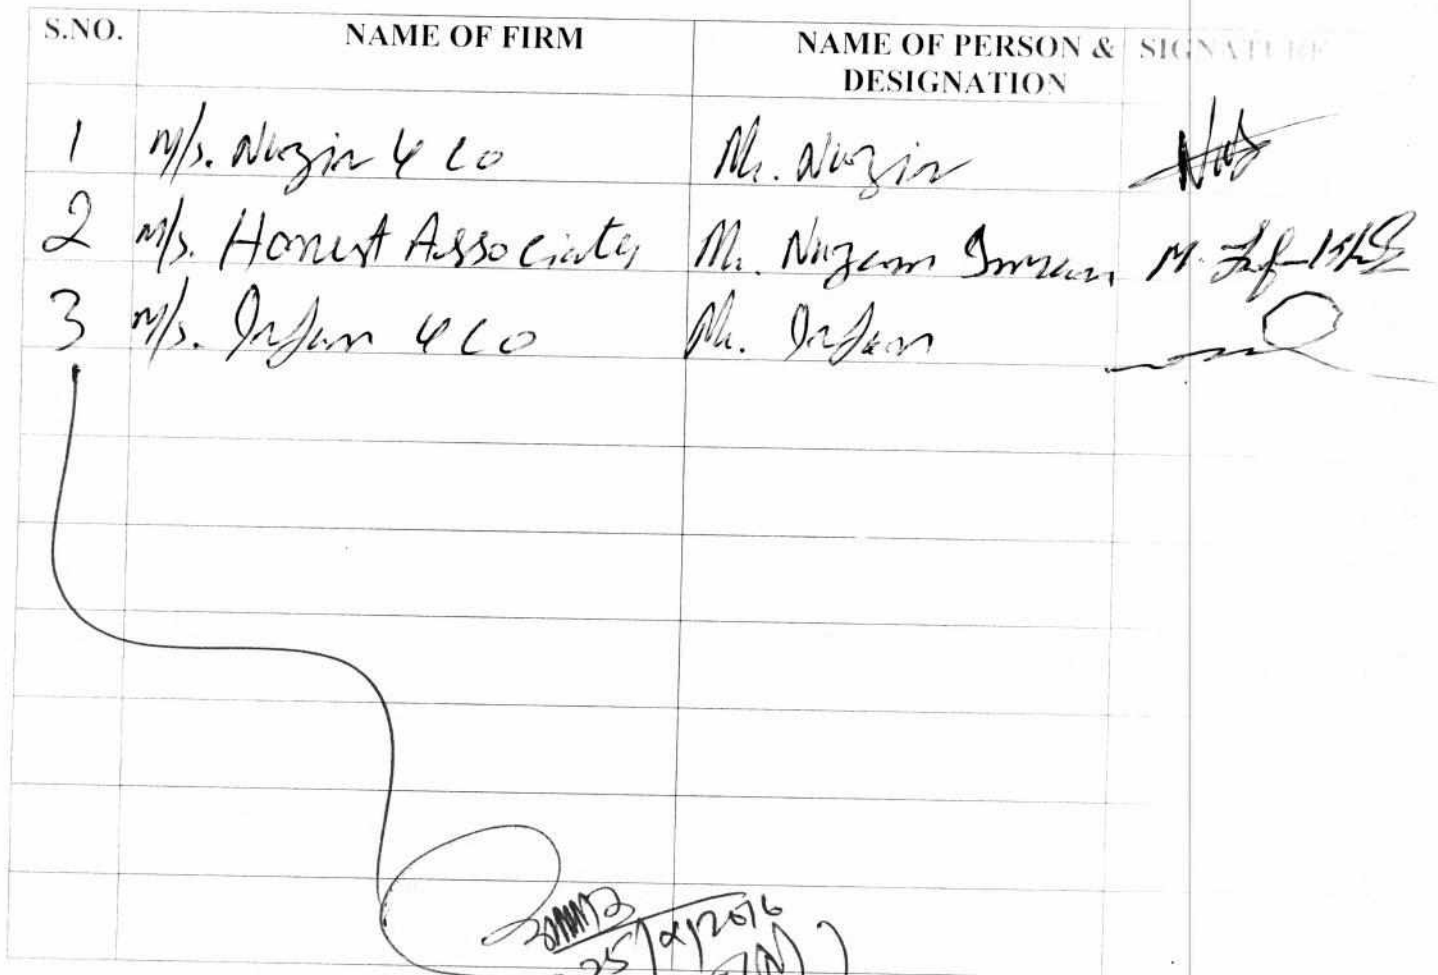 S.NO. NAME OF FIRM NAME OF PERSON & SIGNATURE
DESIGNATION
1 M/s. Nazir & Co Mr. Nazir
2 M/s. Honest Associates Mr. Nizam Imran
3 M/s. Irfan & Co Mr. Irfan
25/2/2016